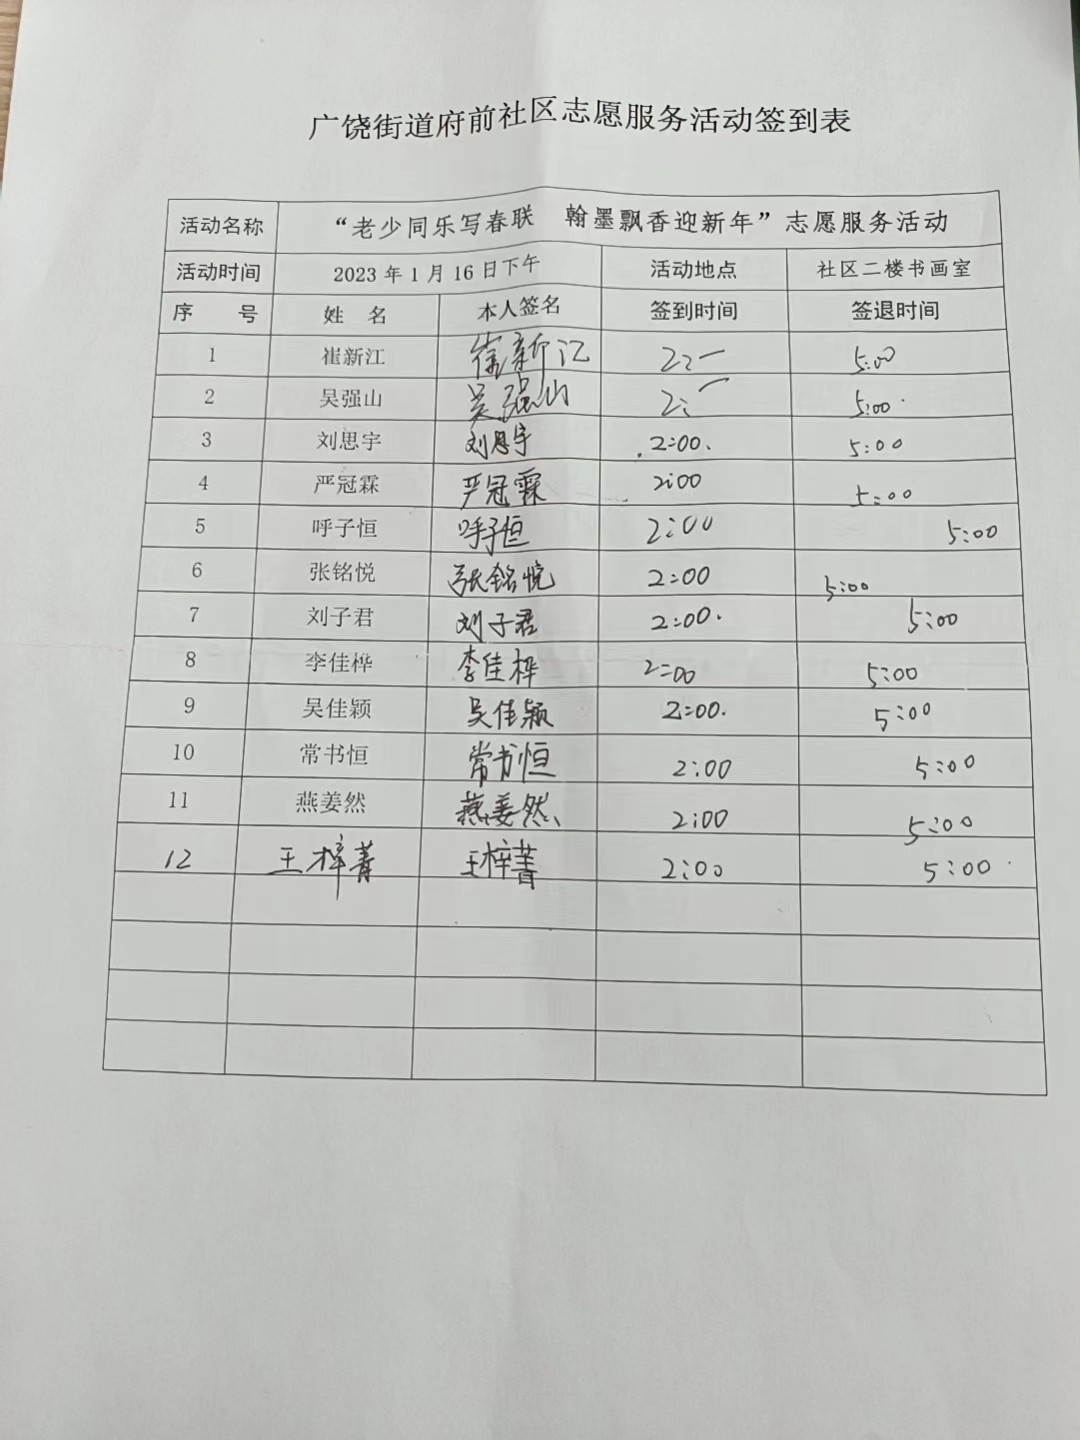 广饶街道府前社区志愿服务活动签到表
活动名称 “老少同乐写春联 翰墨飘香迎新年”志愿服务活动
活动时间 2023年1月16日下午 活动地点 社区二楼书画室
序 号 姓 名 本人签名 签到时间 签退时间
1 崔新江 崔新江 2:一 5:00
2 吴强山 吴强山 2:一 5:00
3 刘思宇 刘思宇 2:00 5:00
4 严冠霖 严冠霖 2:00 5:00
5 呼子恒 呼子恒 2:00 5:00
6 张铭悦 张铭悦 2:00 5:00
7 刘子君 刘子君 2:00 5:00
8 李佳桦 李佳桦 2:00 5:00
9 吴佳颖 吴佳颖 2:00 5:00
10 常书恒 常书恒 2:00 5:00
11 燕姜然 燕姜然 2:00 5:00
12 王梓菁 王梓菁 2:00 5:00